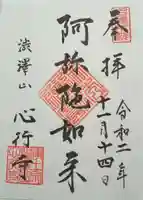 奉拝
令和二年
十一月十四日
阿弥陀如来
澁澤山
心行寺